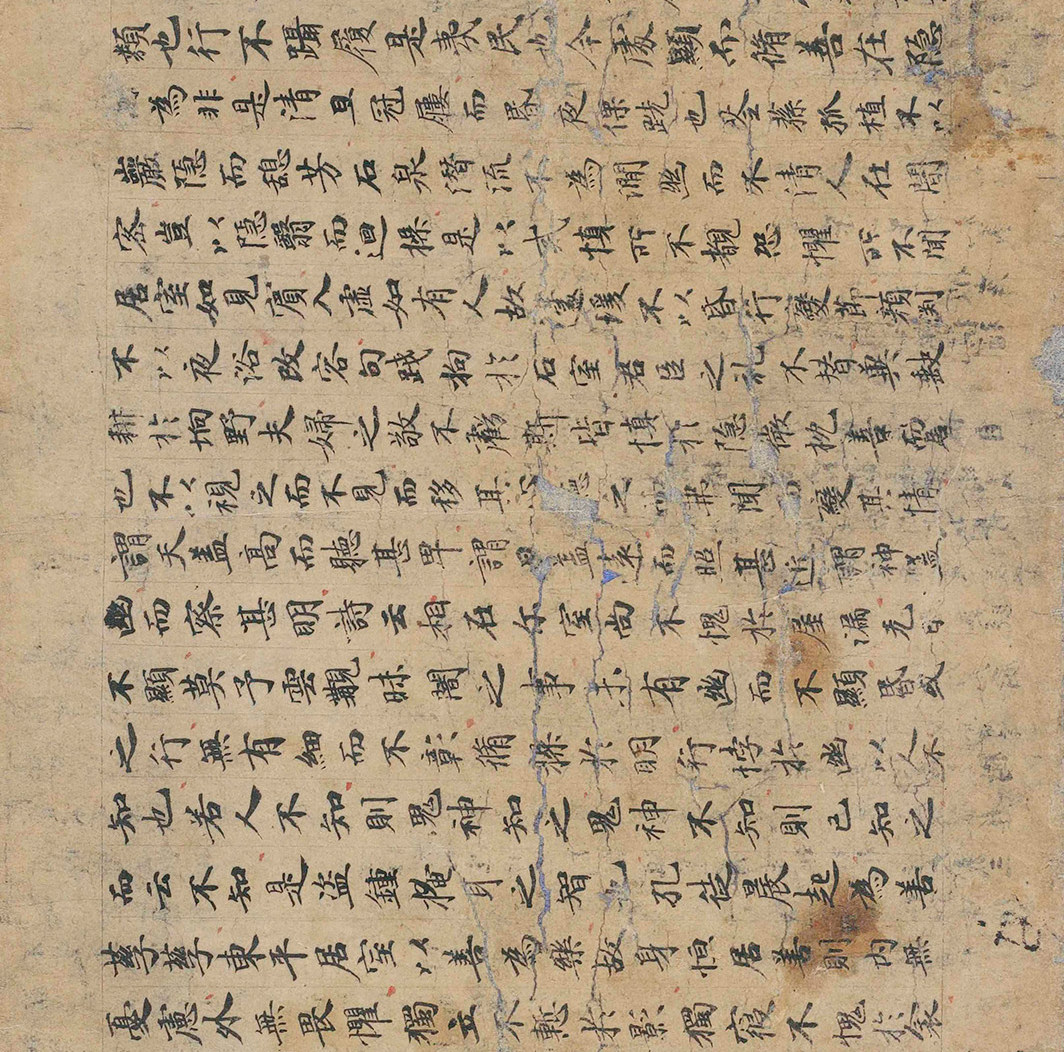 類也行不躡履是夷民也今處顯而脩善在隱
為非是清旦冠屨而昏夜倮跣也荃蓀孤植不以
巖隱而憩芳石泉潛流不為澗幽而不清人在闇
密豈以隱翳而迴操是以戒慎所不覩恐懼所不聞
居室如見賓入虛如有人故蘧瑗不以昏行變節顏渊
不以夜浴改容句踐拘於石室君臣之礼不替兾缺
耕於坰野夫婦之敬不虧斯皆慎於隱微枕善而居
也不以視之而不見而移其心聽之而弗聞而變其情
謂天盖高而聽甚卑謂日盖遠而照甚近謂神盖
幽而察甚明詩云相在尔室尚不愧於屋漏无曰
不顯莫予雲覯昧闇之事未有幽而不顯昬或
之行無有細而不彰脩操於明行悖於幽以人不
知也若人不知則鬼神知之鬼神不知則己知之
而云不知是盜鍾掩耳之智也孔徒晨起為善
孳孳東平居室以善為樂故身恒居善則內無
憂慮外無畏懼獨立不慙於影獨寢不愧於衾